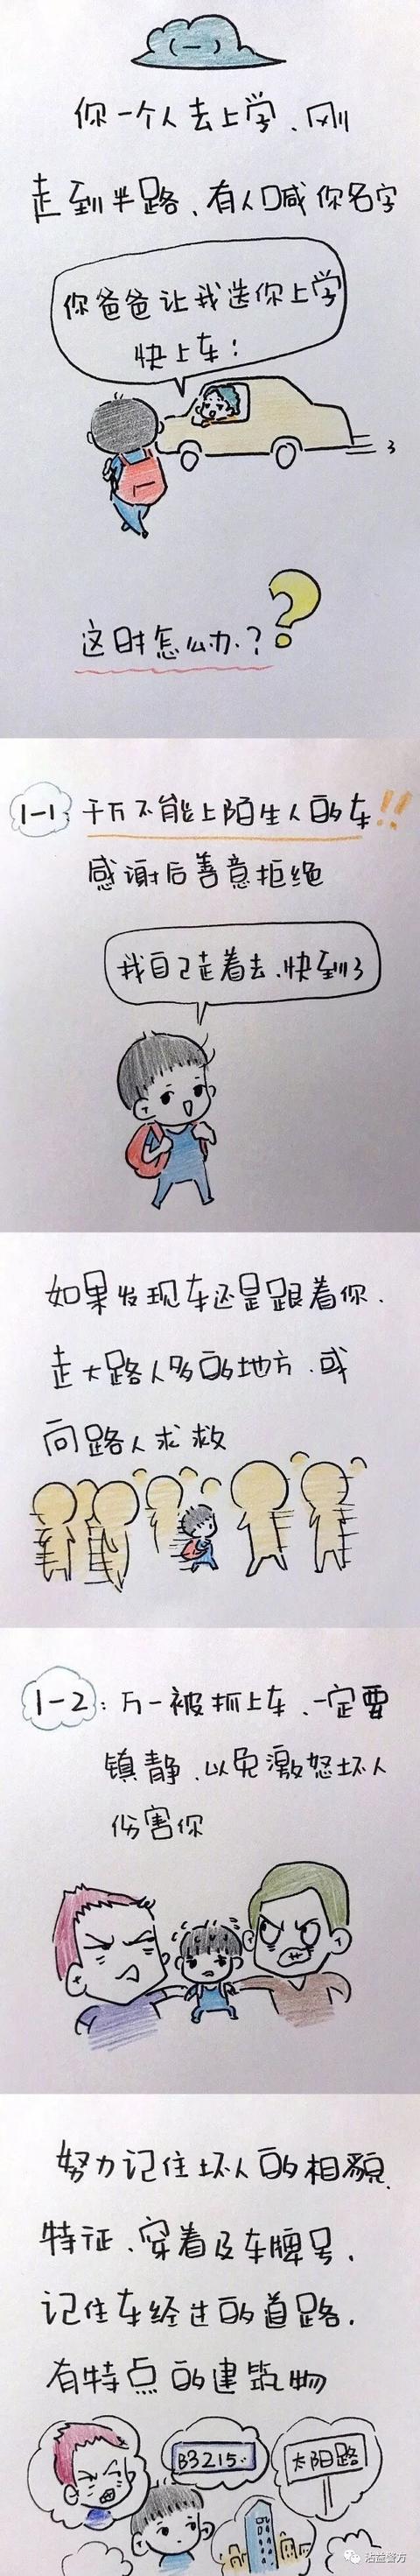 (一)
你一个人去上学、刚
走到半路、有人喊你名字
你爸爸让我送你上学
快上车！
这时怎么办.？
?
1-1: 千万不能上陌生人的车!!
感谢后善意拒绝
我自己走着去.快到了
如果发现车还是跟着你.
走大路人多的地方.或
向路人求救
1-2: 万一被抓上车、一定要
镇静、以免激怒坏人
伤害你
努力记住坏人的相貌、
特征、穿着及车牌号、
记住车经过的道路.
有特点的建筑物
B3215..
太阳路
沾益警方